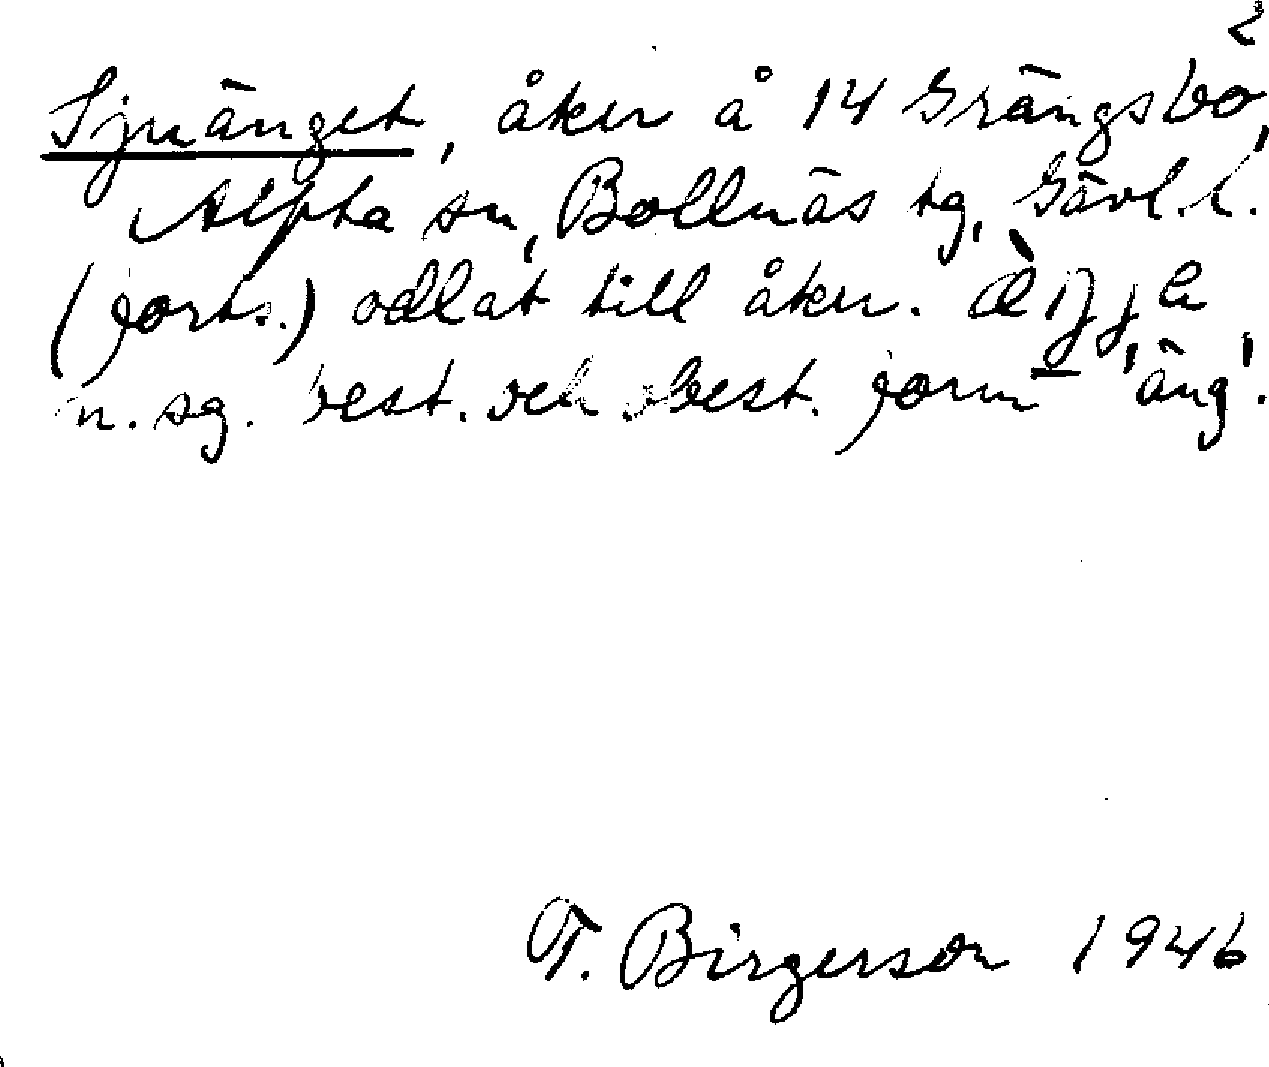 2
Sjuänget, åker å 14 Grängsbo,
Alfta sn, Bollnäs tg, Gävl. l.
(forts.) odlat till åker.
n. sg. best. och obest. form 'äng'.
T. Birgerson 1946